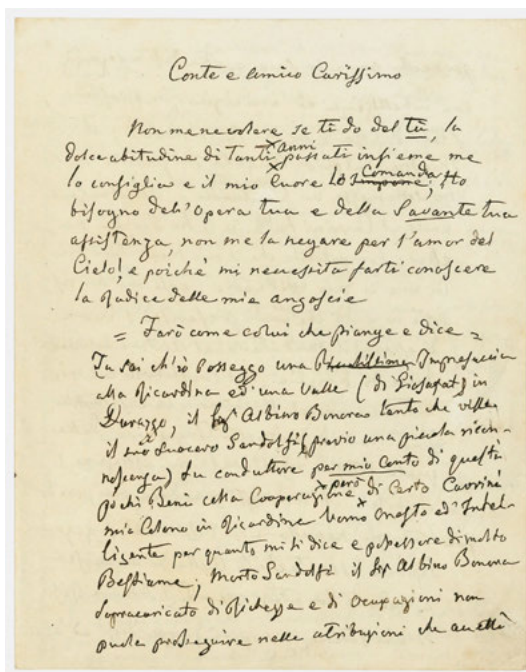 Conte e Amico Carissimo
Non me ne volere se ti do del tù, la
dolce abitudine di tanti anni passati insieme me
lo consiglia e il mio Cuore Lo impone Comanda; Ho
bisogno dell'opera tua e della Savante tua
assistenza, non me la negare per l'amor del
Cielo!, e poichè mi necessita farti conoscere
la Radice delle mie angoscie
= Farò come colui che piange e dice =
Tu sai ch'io Posseggo una Impresuccia
alla Ricardina ed una Valle (di Giosafat) in
Durazzo, il Sigr Albino Bonora tanto che visse
il suo Suocero Sandolfi (previo una piccola ricon=
noscenza) fu conduttore per mio conto di questi
pochi Beni colla Cooperazione però di Certo Cavrini
mio Colono in Ricardina Uomo Onesto ed Intel=
ligente per quanto mi si dice e possessore di molto
Bestiame; Morto Sandolfi il Sigr Albino Bonora
Sopracaricato di Richezze e di Ocupazioni non
vuole proseguire nelle atribuzioni che